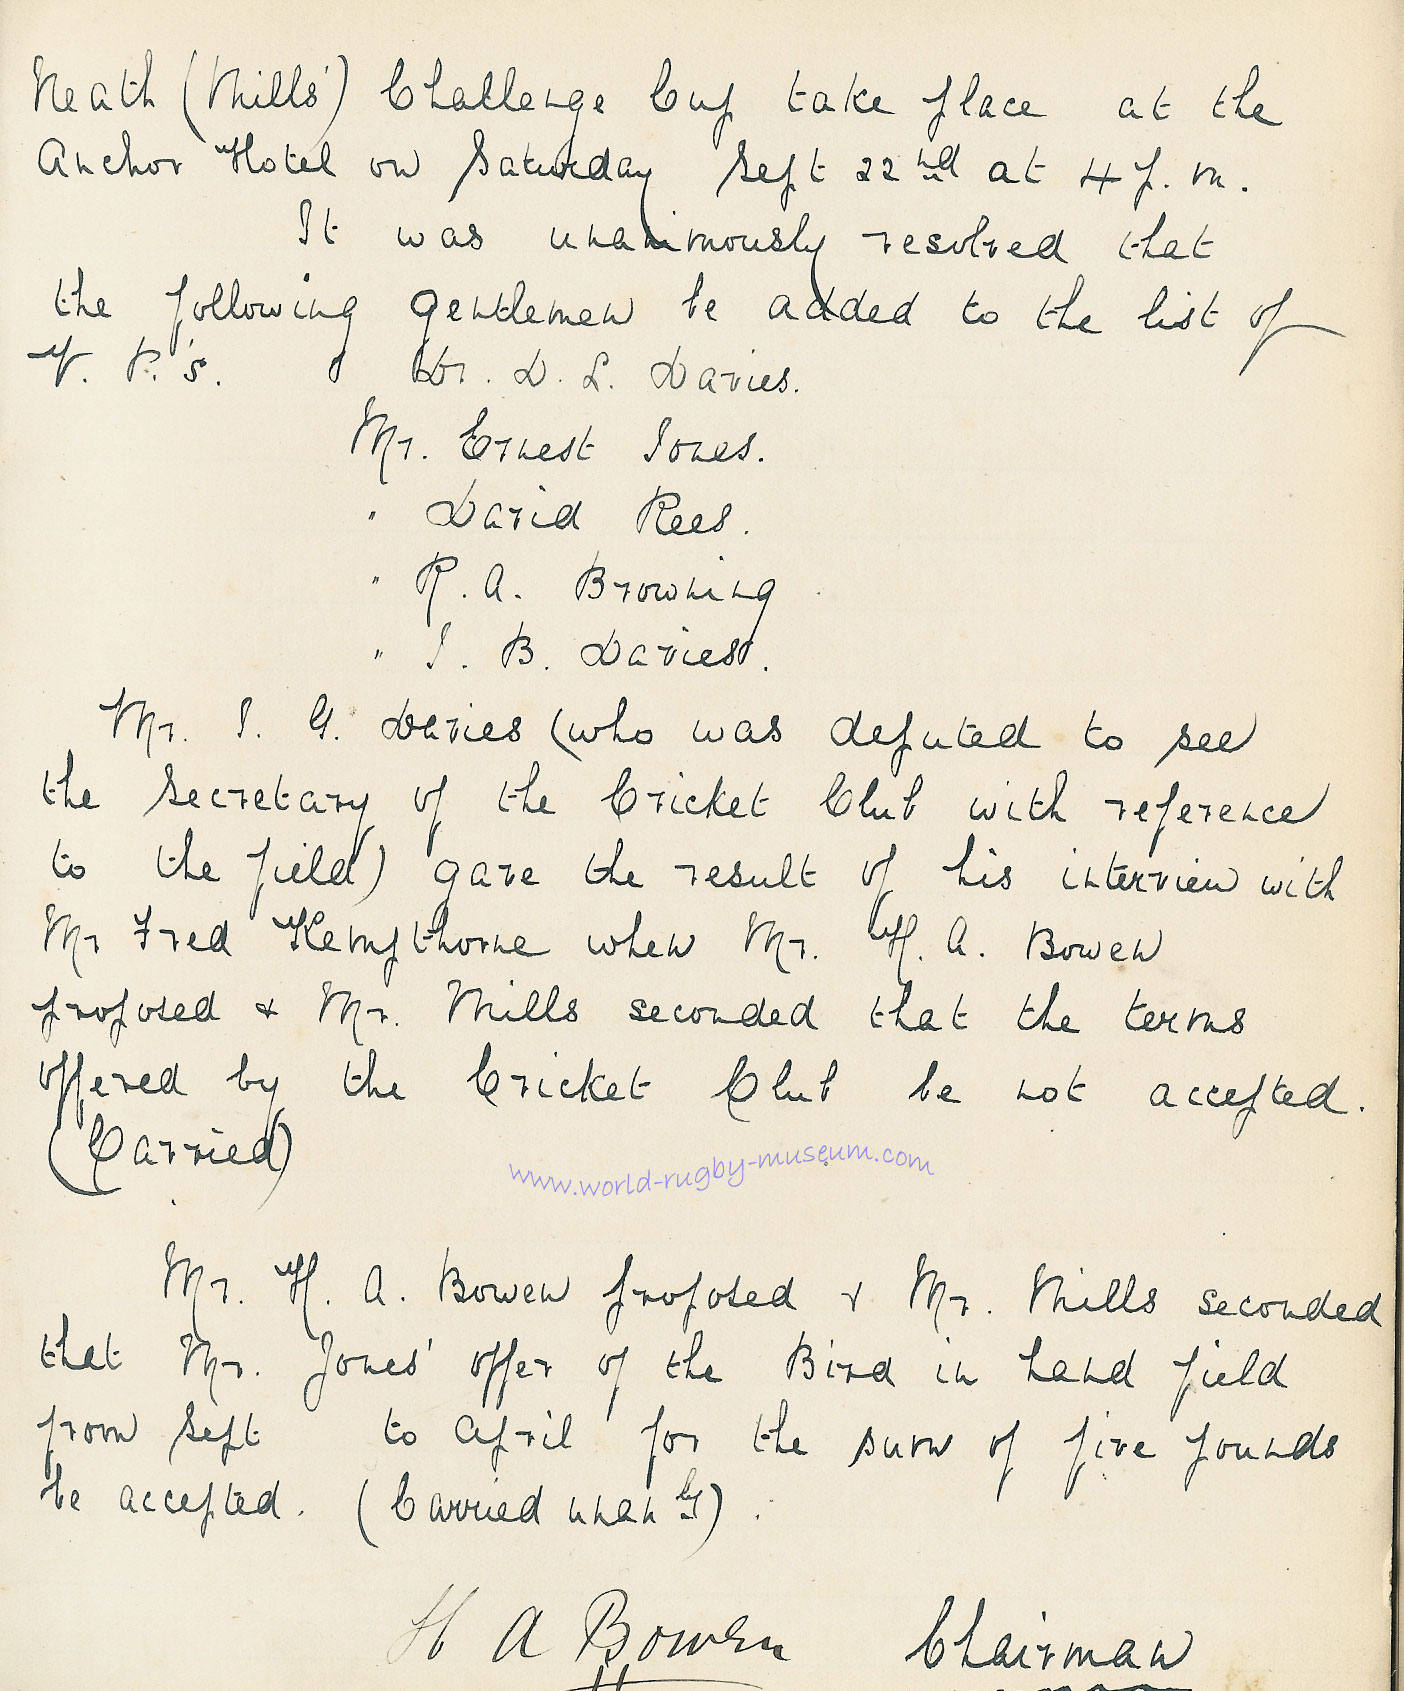 Neath (Mills') Challenge Cup take place at the
Anchor Hotel on Saturday Sept 22nd at 4 p.m.
It was unanimously resolved that
the following gentlemen be added to the list of
V. P.'s. Dr. D. L. Davies.
Mr. Ernest Jones.
" David Rees.
" R. A. Browning
" J. B. Davies.
Mr. J. G. Davies (who was deputed to see
the Secretary of the Cricket Club with reference
to the field) gave the result of his interview with
Mr Fred Kempthorne when Mr. H. A. Bowen
proposed & Mr. Mills seconded that the terms
offered by the Cricket Club be not accepted.
(Carried)
www.world-rugby-museum.com
Mr. H. A. Bowen proposed & Mr. Mills seconded
that Mr. Jones' offer of the Bird in hand field
from Sept to April for the sum of five pounds
be accepted. (Carried unanly).
H A Bowen Chairman